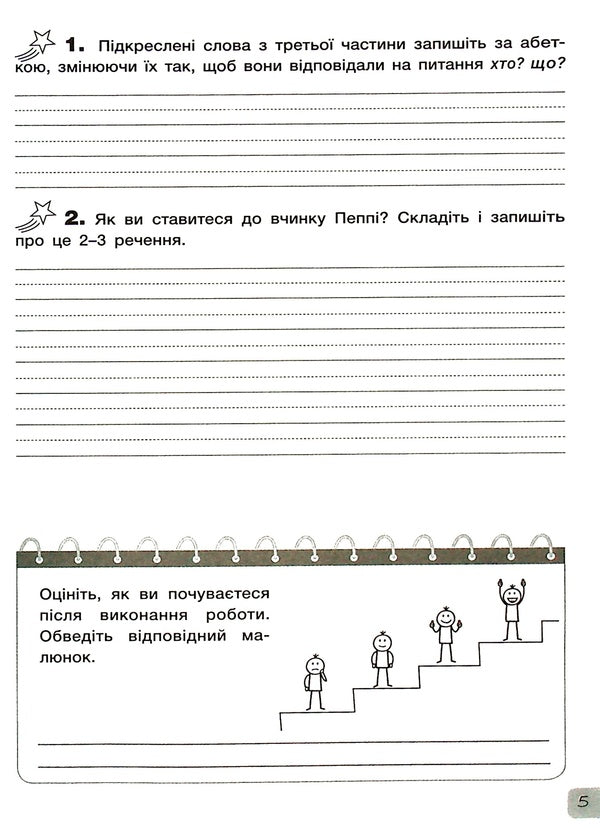 1. Підкреслені слова з третьої частини запишіть за абет-
кою, змінюючи їх так, щоб вони відповідали на питання хто? що?
2. Як ви ставитеся до вчинку Пеппі? Складіть і запишіть
про це 2–3 речення.
Оцініть, як ви почуваєтеся
після виконання роботи.
Обведіть відповідний ма-
люнок.
5